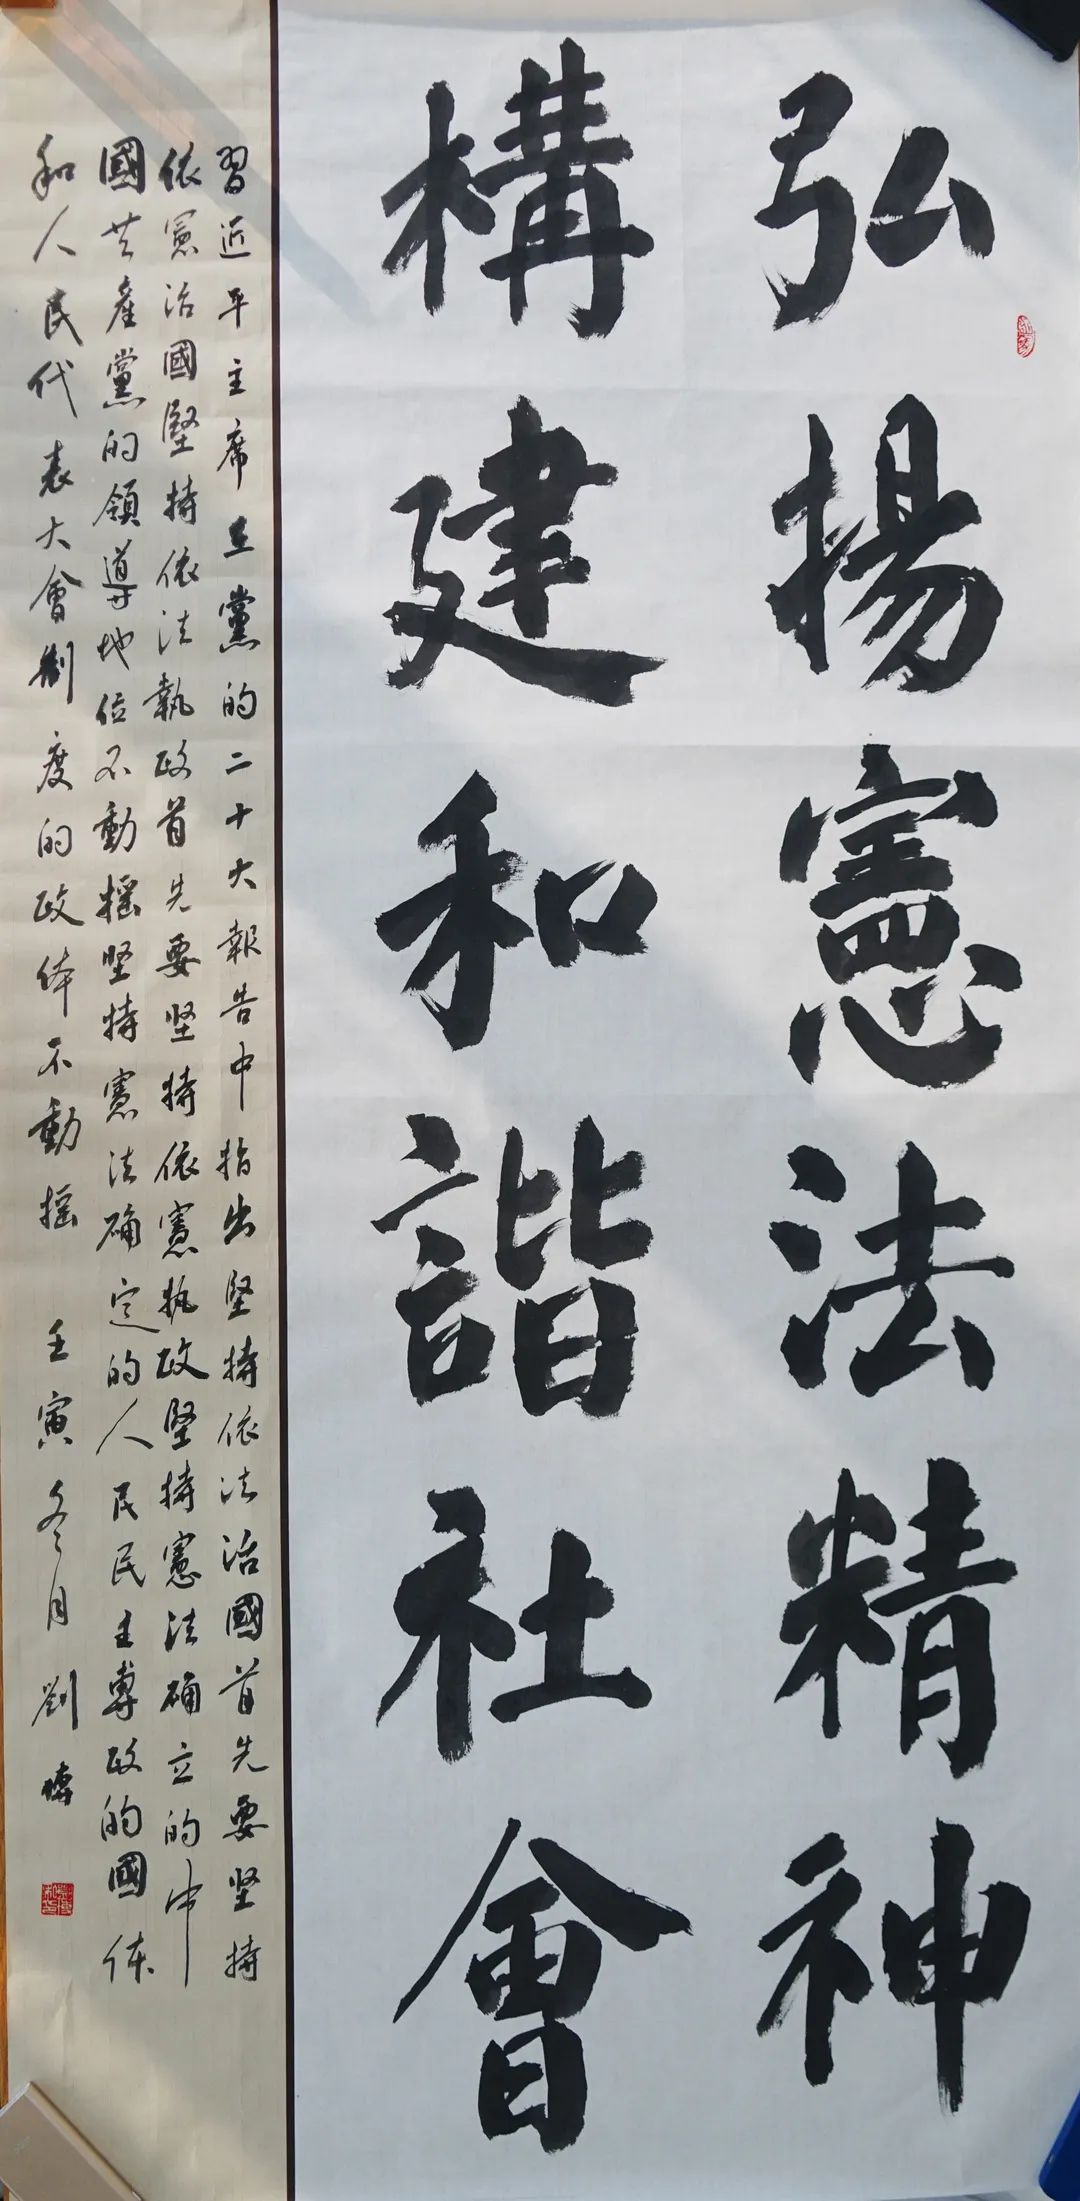 弘揚憲法精神
構建和諧社會
習近平主席在黨的二十大報告中指出堅持依法治國首先要坚持
依憲治國堅持依法執政首先要坚持依憲执政堅持憲法确立的中
國共產黨的領導地位不動摇坚持憲法确定的人民民主專政的國体
和人民代表大會制度的政体不動摇
壬寅冬月劉博